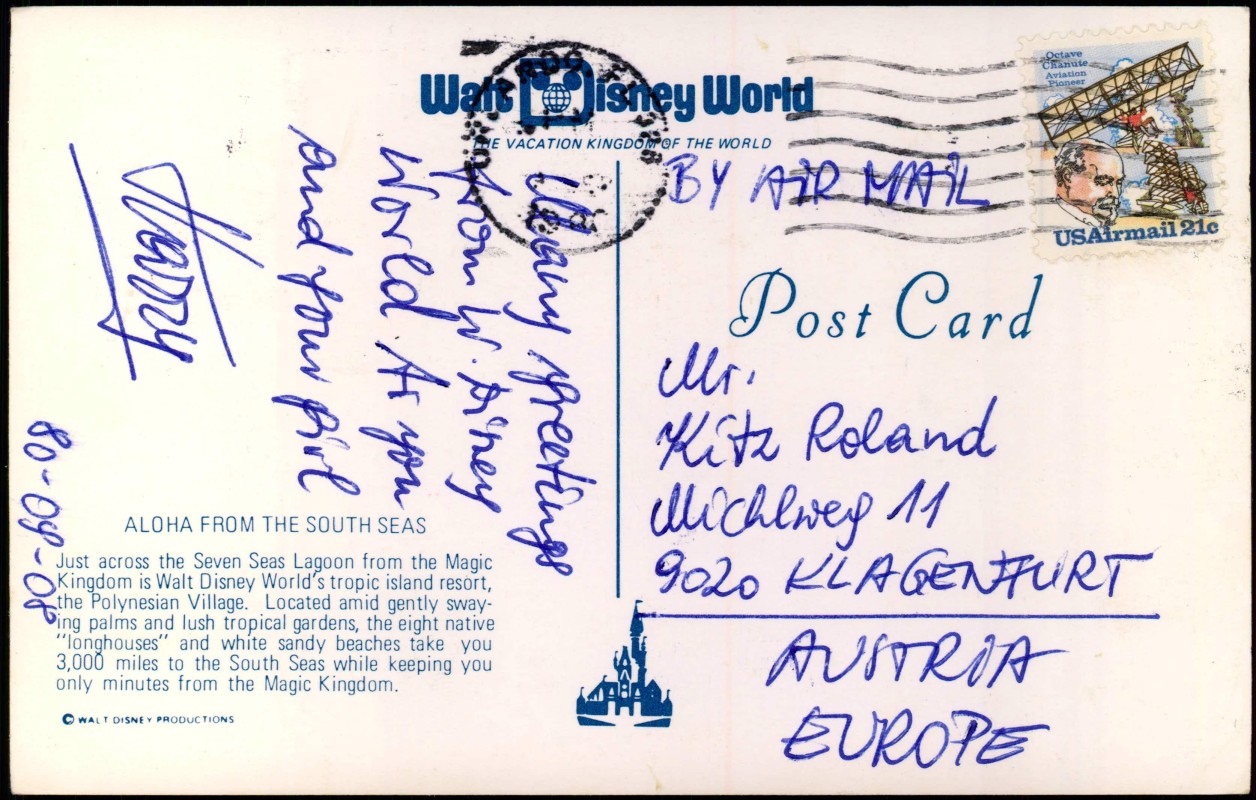 Walt Disney World
THE VACATION KINGDOM OF THE WORLD
Octave
Chanute
Aviation
Pioneer
USAirmail 21c
BY AIR MAIL
Post Card
Many greetings
from W. Disney
World to you
and your girl
Harry
80-09-08
Mr.
Kitz Roland
Michlweg 11
9020 KLAGENFURT
AUSTRIA
EUROPE
ALOHA FROM THE SOUTH SEAS
Just across the Seven Seas Lagoon from the Magic
Kingdom is Walt Disney World's tropic island resort,
the Polynesian Village. Located amid gently sway-
ing palms and lush tropical gardens, the eight native
"longhouses" and white sandy beaches take you
3,000 miles to the South Seas while keeping you
only minutes from the Magic Kingdom.
© WALT DISNEY PRODUCTIONS